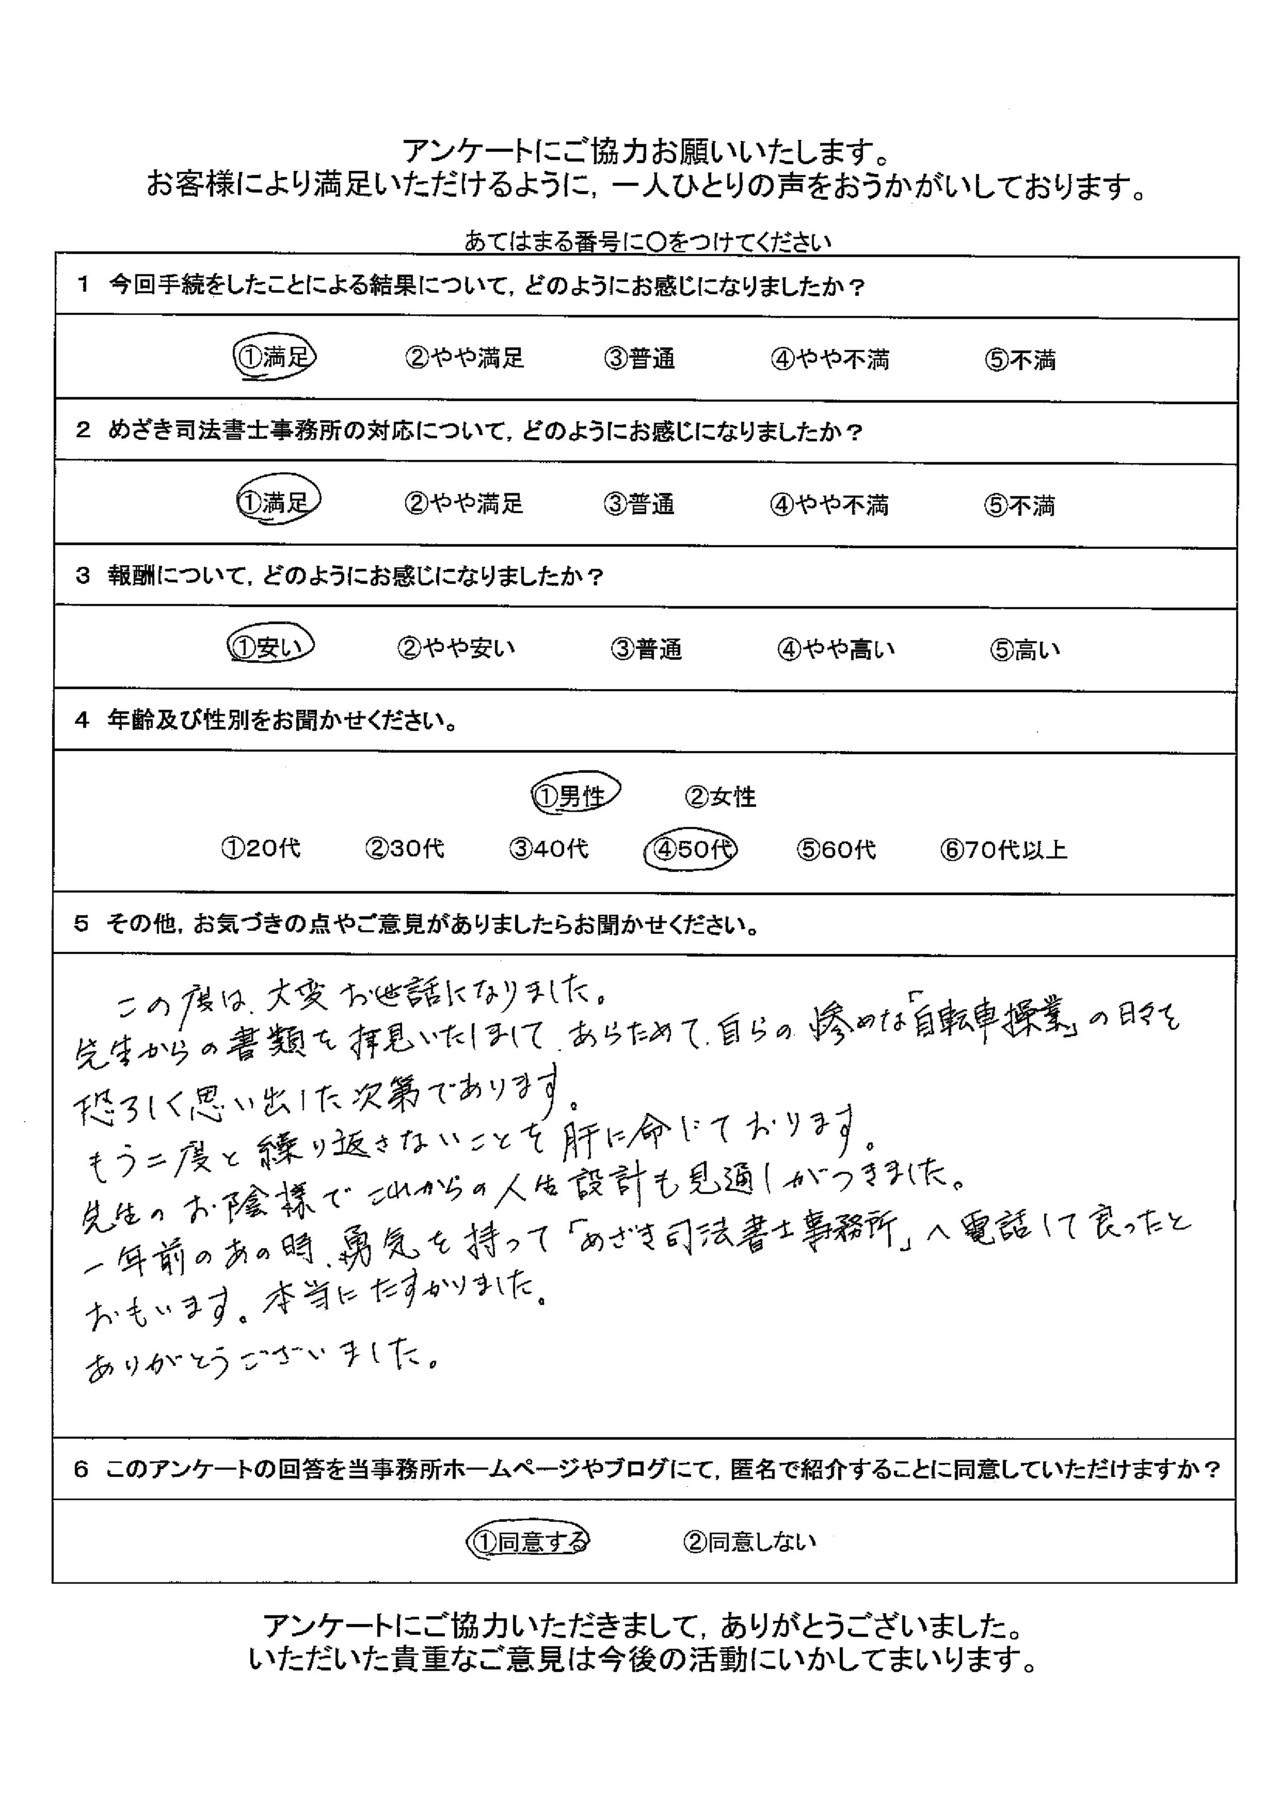 アンケートにご協力お願いいたします。
お客様により満足いただけるように，一人ひとりの声をおうかがいしております。
あてはまる番号に○をつけてください
1 今回手続をしたことによる結果について，どのようにお感じになりましたか？
①満足 ②やや満足 ③普通 ④やや不満 ⑤不満
2 めざき司法書士事務所の対応について，どのようにお感じになりましたか？
①満足 ②やや満足 ③普通 ④やや不満 ⑤不満
3 報酬について，どのようにお感じになりましたか？
①安い ②やや安い ③普通 ④やや高い ⑤高い
4 年齢及び性別をお聞かせください。
①男性 ②女性
①20代 ②30代 ③40代 ④50代 ⑤60代 ⑥70代以上
5 その他，お気づきの点やご意見がありましたらお聞かせください。
この度は、大変お世話になりました。
先生からの書類を拝見いたしまして、あらためて、自らの惨めな「自転車操業」の日々を
恐ろしく思い出した次第であります。
もう二度と繰り返さないことを肝に命じております。
先生のお陰様でこれからの人生設計も見通しがつきました。
一年前のあの時、勇気を持って「めざき司法書士事務所」へ電話して良ったと
おもいます。本当にたすかりました。
ありがとうございました。
6 このアンケートの回答を当事務所ホームページやブログにて，匿名で紹介することに同意していただけますか？
①同意する ②同意しない
アンケートにご協力いただきまして，ありがとうございました。
いただいた貴重なご意見は今後の活動にいかしてまいります。